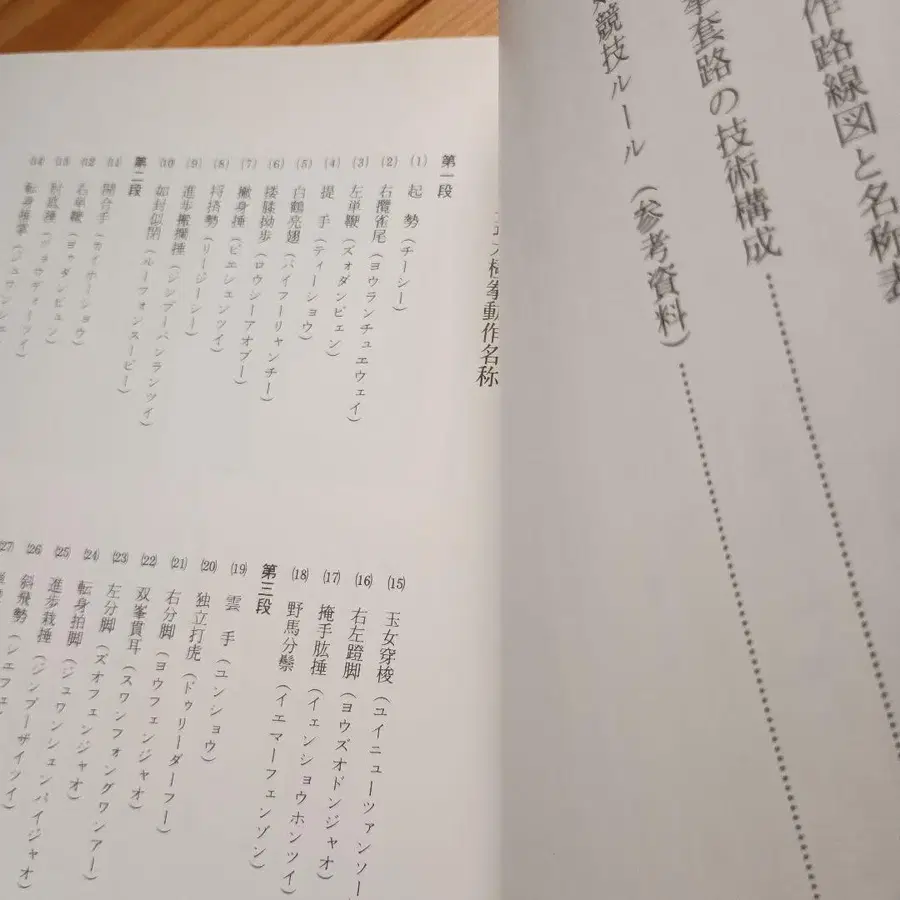 作路線図と名称表
拳套路の技術構成
競技ルール（参考資料）
太極拳動作名称
第一段
(1) 起勢（チーシー）
(2) 右攬雀尾（ヨウランチュエウェイ）
(3) 左単鞭（ズオダンビェン）
(4) 提手（ティーショウ）
(5) 白鶴亮翅（バイフーリャンチー）
(6) 搂膝拗歩（ロウシーアオブー）
(7) 撇身捶（ピエシェンツイ）
(8) 捋挤勢（リージーシー）
(9) 進歩搬攔捶（ジンブーバンランツイ）
(10) 如封似閉（ルーフォンスービー）
第二段
(11) 開合手（カイホーショウ）
(12) 右単鞭（ヨウダンビェン）
(13) 肘底捶
(14) 転身推掌
(15) 玉女穿梭（ユイニューツァンソー
(16) 右左蹬脚（ヨウズオドンジャオ）
(17) 掩手肱捶（イェンショウホンツイ）
(18) 野馬分鬃（イエマーフェンゾン）
第三段
(19) 雲手（ユンショウ）
(20) 独立打虎（ドゥリーダーフー）
(21) 右分脚（ヨウフェンジャオ）
(22) 双峯貫耳（スワンフォングワンアー）
(23) 左分脚（ズオフェンジャオ）
(24) 転身拍脚（ジュワンシェンパイジャオ）
(25) 進歩栽捶（ジンブーザイツイ）
(26) 斜飛勢（シエフェイ
(27)